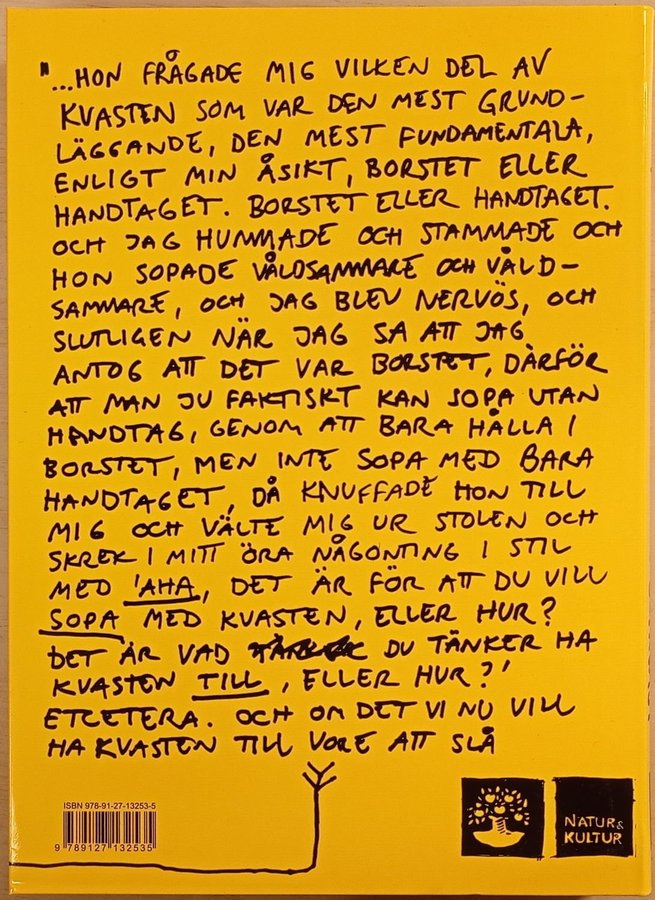 "...HON FRÅGADE MIG VILKEN DEL AV
KVASTEN SOM VAR DEN MEST GRUND-
LÄGGANDE, DEN MEST FUNDAMENTALA,
ENLIGT MIN ÅSIKT, BORSTET ELLER
HANDTAGET. BORSTET ELLER HANDTAGET.
OCH JAG HUMMADE OCH STAMMADE OCH
HON SOPADE VÅLDSAMMARE OCH VÅLD-
SAMMARE, OCH JAG BLEV NERVÖS, OCH
SLUTLIGEN NÄR JAG SA ATT JAG
ANTOG ATT DET VAR BORSTET, DÄRFÖR
ATT MAN JU FAKTISKT KAN SOPA UTAN
HANDTAG, GENOM ATT BARA HÅLLA I
BORSTET, MEN INTE SOPA MED BARA
HANDTAGET, DÅ KNUFFADE HON TILL
MIG OCH VÄLTE MIG UR STOLEN OCH
SKREK I MITT ÖRA NÅGONTING I STIL
MED 'AHA, DET ÄR FÖR ATT DU VILL
SOPA MED KVASTEN, ELLER HUR?
DET ÄR VAD DU TÄNKER HA
KVASTEN TILL, ELLER HUR?'
ETCETERA. OCH OM DET VI NU VILL
HA KVASTEN TILL VORE ATT SLÅ
ISBN 978-91-27-13253-5
9 789127 132535
NATUR&
KULTUR